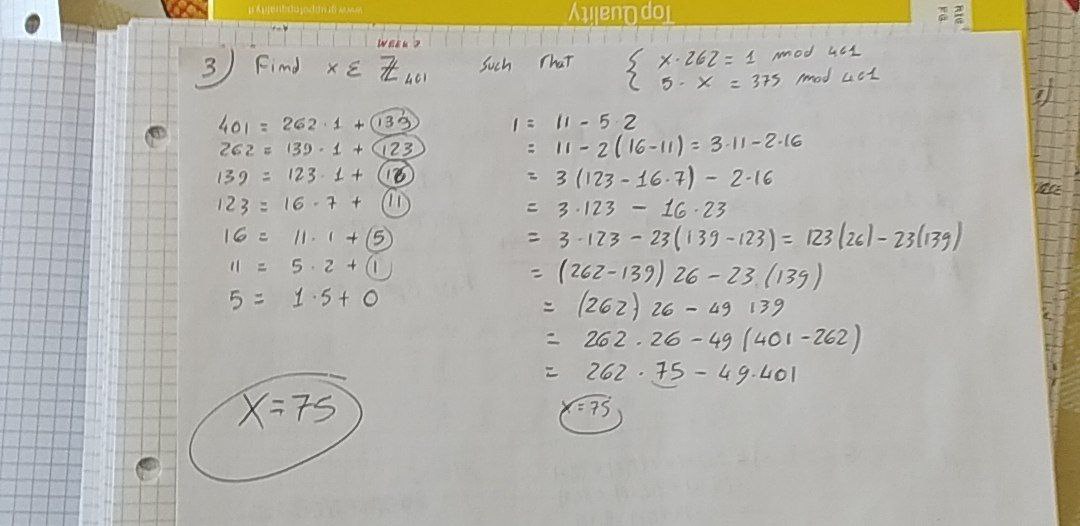 www.grupopacopaquality.it
TopQuality
WEEK 2
3) Find x ∈ ℤ₄₀₁ such that { x · 262 = 1 mod 401
5 · x = 375 mod 401
401 = 262 · 1 + 139
262 = 139 · 1 + 123
139 = 123 · 1 + 16
123 = 16 · 7 + 11
16 = 11 · 1 + 5
11 = 5 · 2 + 1
5 = 1 · 5 + 0
X = 75
1 = 11 - 5 · 2
= 11 - 2(16 - 11) = 3 · 11 - 2 · 16
= 3(123 - 16 · 7) - 2 · 16
= 3 · 123 - 16 · 23
= 3 · 123 - 23(139 - 123) = 123(26) - 23(139)
= (262 - 139) 26 - 23 · (139)
= (262) 26 - 49 139
= 262 · 26 - 49(401 - 262)
= 262 · 75 - 49 · 401
x = 75